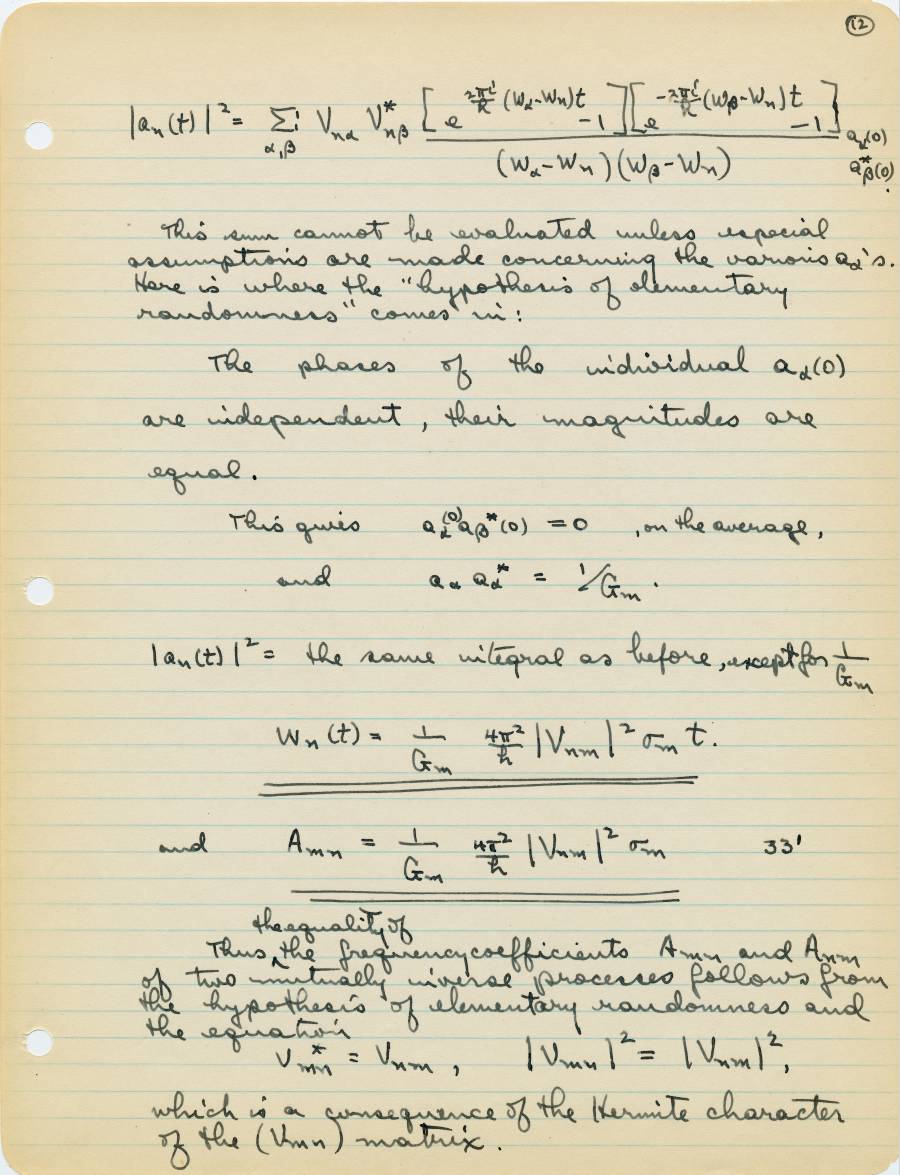 12
|aₙ(t)|² = Σ_{α,β} V_{nα} V*_{nβ} [e^{2πi/h (W_α−Wₙ)t} −1][e^{−2πi/h (W_β−Wₙ)t} −1] / (W_α−Wₙ)(W_β−Wₙ) a_α(0) a*_β(0).
This sum cannot be evaluated unless especial
assumptions are made concerning the various a_α's.
Here is where the "hypothesis of elementary
randomness" comes in:
The phases of the individual a_α(0)
are independent, their magnitudes are
equal.
This gives a_α(0) a_β*(0) = 0 , on the average,
and a_α a_α* = 1/G_m.
|aₙ(t)|² = the same integral as before, except for 1/G_m
Wₙ(t) = 1/G_m 4π²/h |V_{nm}|² σ_m t.
and A_{mn} = 1/G_m 4π²/h |V_{nm}|² σ_m 33'
the equality of
Thus ^ the frequency coefficients A_{mn} and A_{nm}
of two mutually inverse processes follows from
the hypothesis of elementary randomness and
the equation
V*_{mn} = V_{nm} , |V_{mn}|² = |V_{nm}|²,
which is a consequence of the Hermite character
of the (V_{mn}) matrix.